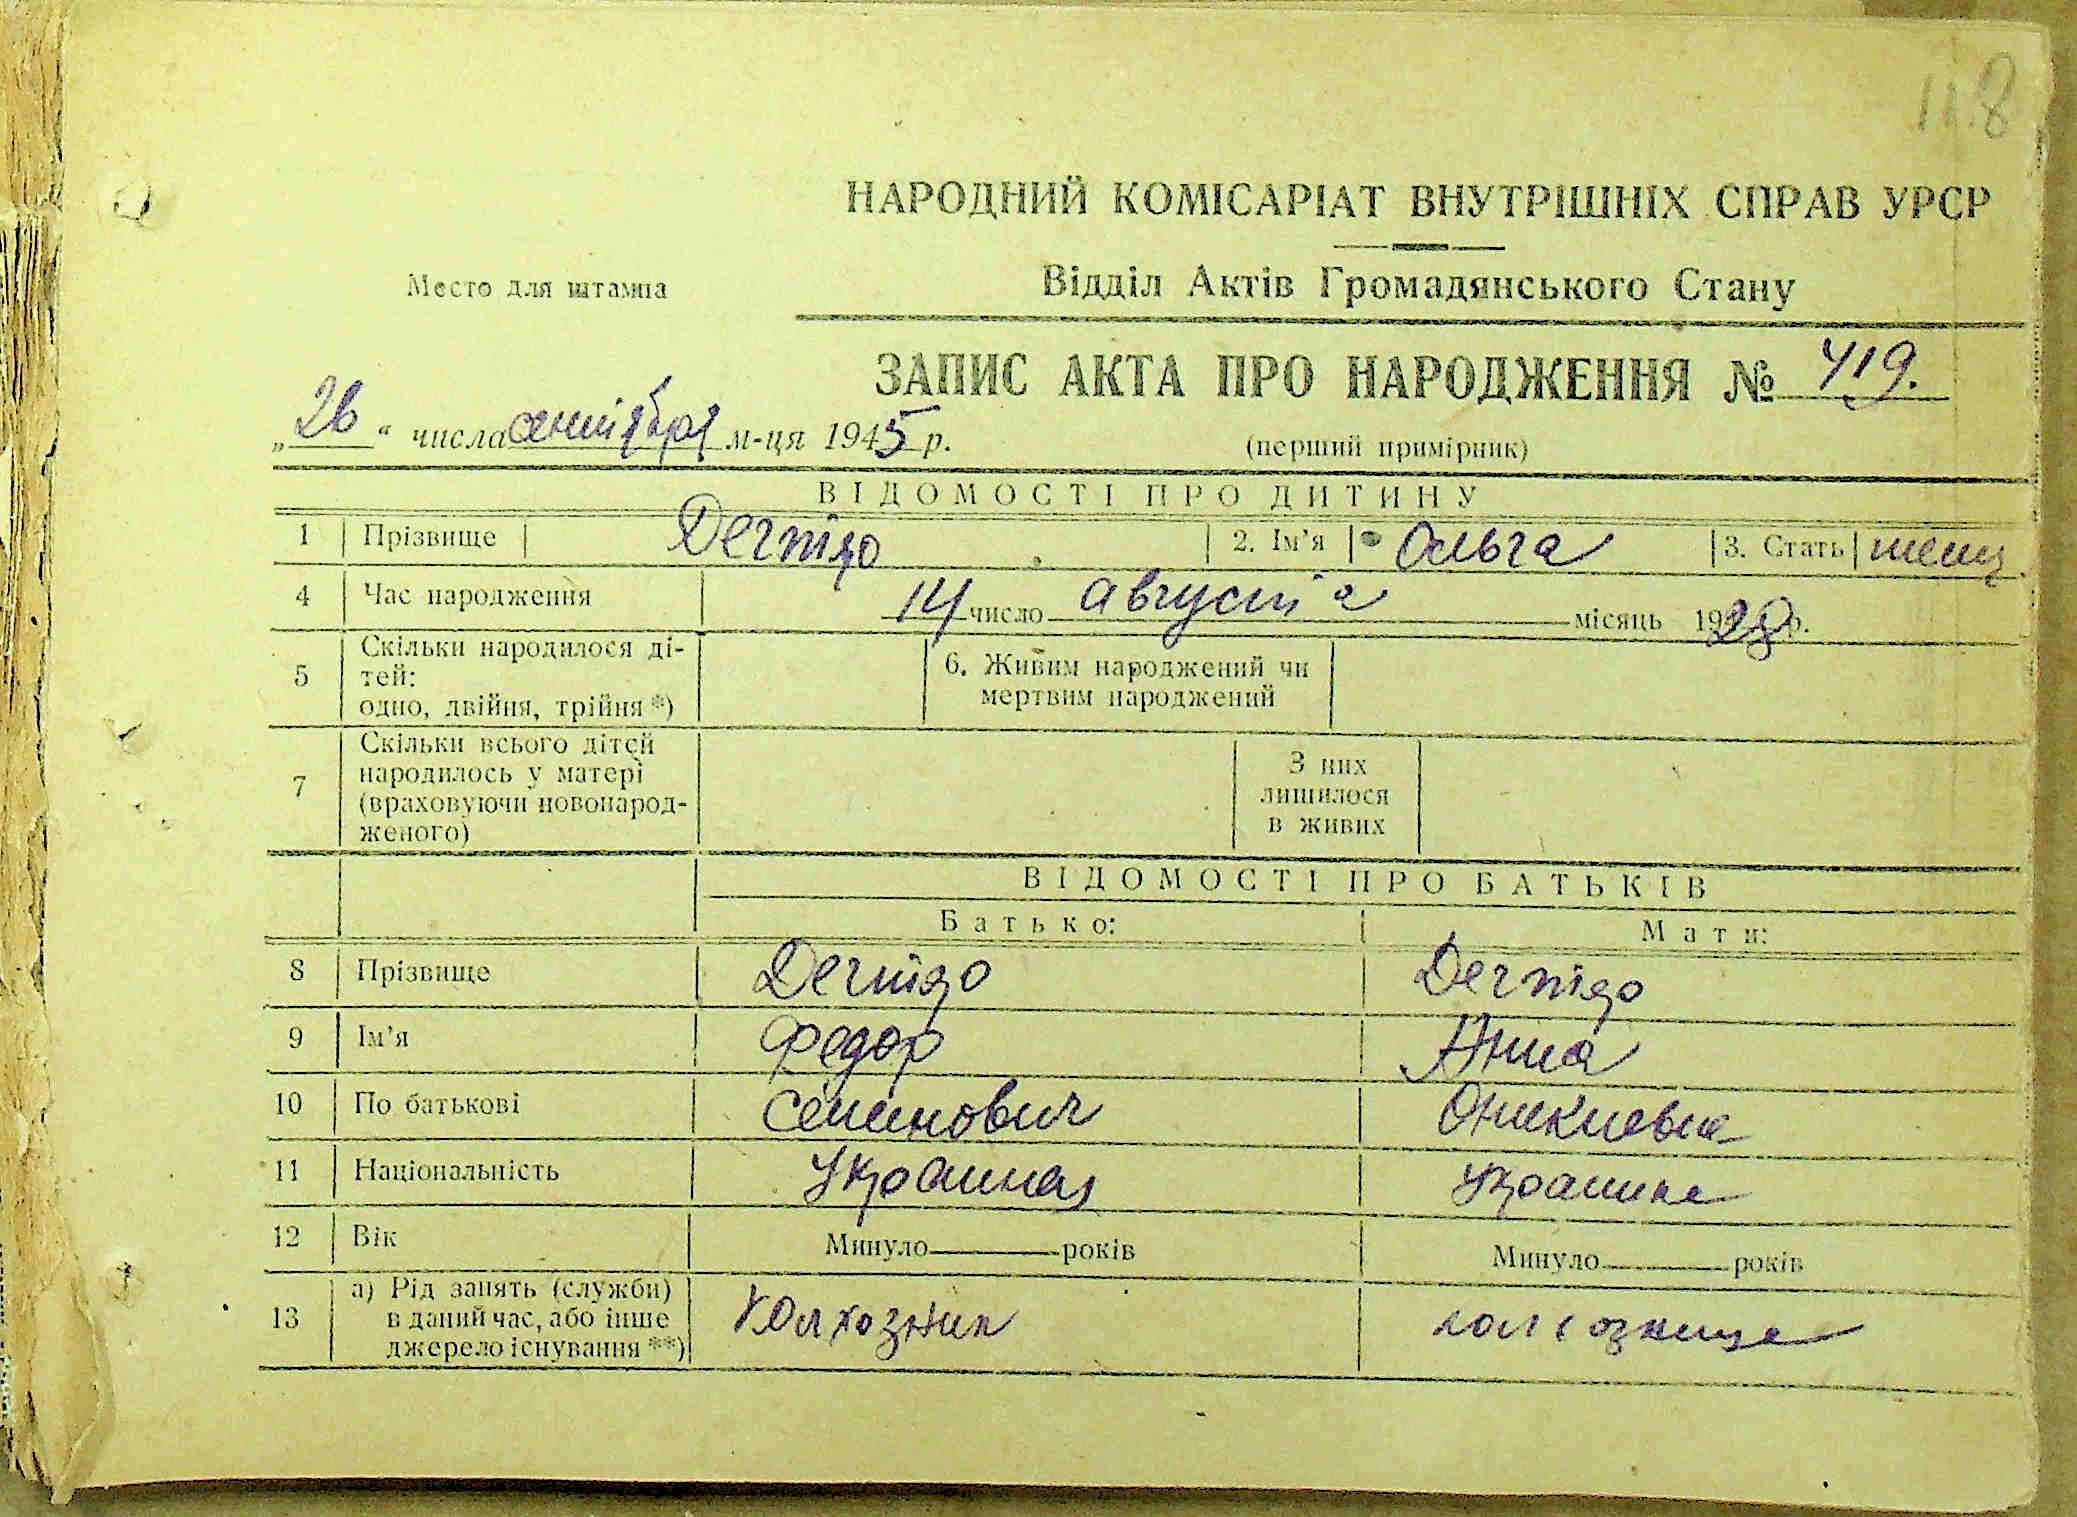 118
НАРОДНИЙ КОМІСАРІАТ ВНУТРІШНІХ СПРАВ УРСР
Место для штампа
Відділ Актів Громадянського Стану
ЗАПИС АКТА ПРО НАРОДЖЕННЯ № 419.
„26“ числа сентября м-ця 1945 р.
(перший примірник)
ВІДОМОСТІ ПРО ДИТИНУ
1 Прізвище Дегтяро 2. Ім'я Ольга 3. Стать женщ
4 Час народження 14 число августа місяць 1928 р.
5 Скільки народилося ді-
тей:
одно, двійня, трійня *)
6. Живим народжений чи
мертвим народжений
7 Скільки всього дітей
народилось у матері
(враховуючи новонарод-
женого)
З них
лишилося
в живих
ВІДОМОСТІ ПРО БАТЬКІВ
Батько: Мати:
8 Прізвище Дегтяро Дегтяро
9 Ім'я Федор Анна
10 По батькові Семенович Оникиевна
11 Національність Украинец Украинка
12 Вік Минуло років Минуло років
13 а) Рід занять (служби)
в даний час, або інше
джерело існування **)
Колхозник колхозница